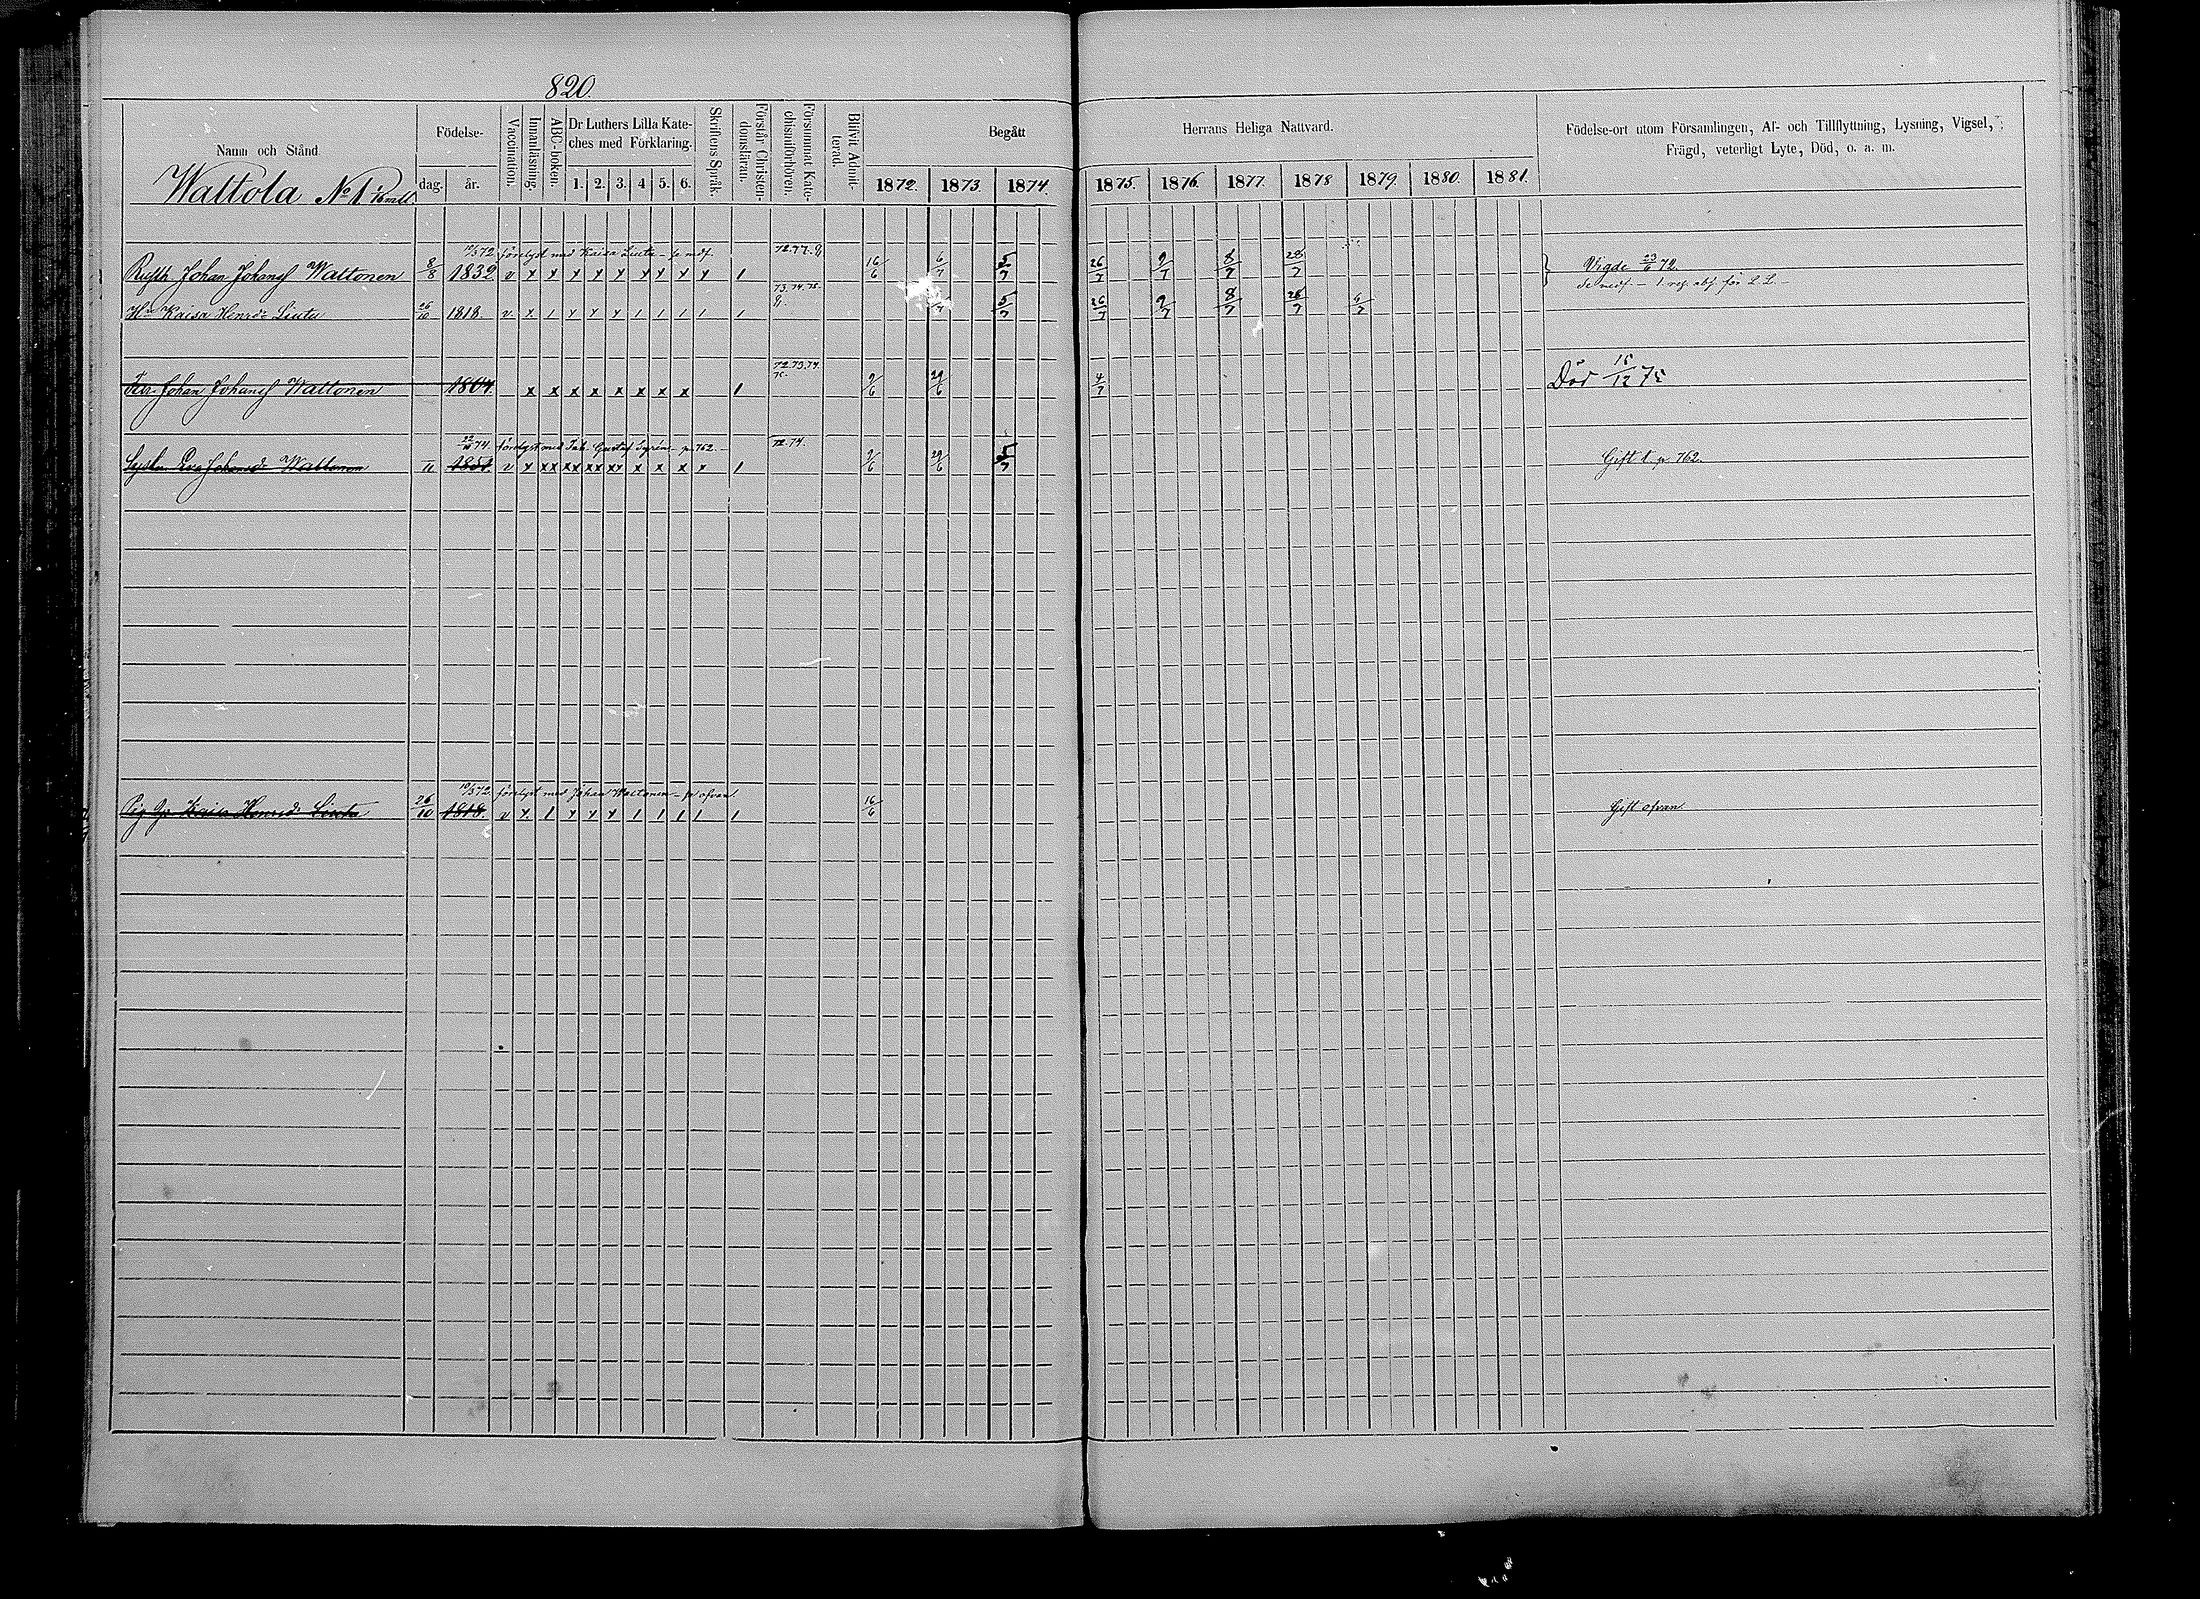 820.
Namn och Stånd.
Födelse-
dag. år.
Vaccination.
Innanläsning.
ABC-boken.
Dr Luthers Lilla Kate-
ches med Förklaring.
1. 2. 3. 4. 5. 6.
Skriftens Språk.
Förstår Christen-
domsläran.
Försummat Kate-
chismiförhören.
Blifvit Admit-
terad.
Begått
1872. 1873. 1874.
Herrans Heliga Nattvard.
1875. 1876. 1877. 1878 1879. 1880. 1881.
Födelse-ort utom Församlingen, Af- och Tillflyttning, Lysning, Vigsel,
Frägd, veterligt Lyte, Död, o. a. m.
Wattola No 1
förelyst med Kaisa Liuta 72.77.
Johan Johansf Wattonen 8/8 1832 v x x x x x x x x x 1 16/6 6/7 5/7 26/7 9/7 8/7 28/7 Vigde 23/6 72.
73.74.75.
Kaisa Henrsdr Liuta 26/10 1818. v x 1 x x x 1 1 1 1 1 5/7 26/7 9/7 8/7 28/7 6/7
72.73.74.
75.
Johan Johansf Wattonen 1804. x x x x x x x x 1 9/6 29/6 4/7 Död 15/12 75
74. förelyst med Joh. Gustaf p. 762. 72.74.
Eva Johansdr Wattonen 11 1851. v x xx xx xx xx x x x x 1 9/6 29/6 5/7 Gift p. 762.
förelyst med Johan Wattonen ofvan
Kaisa Henrsdr Liuta 26/10 1818. v x 1 x x x 1 1 1 1 1 16/6 Gift ofvan.